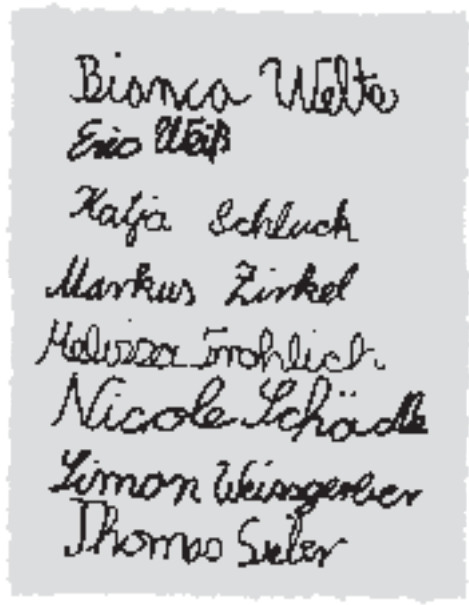 Bianca Welte
Eric Weiß
Katja Schluch
Markus Zirkel
Melissa Fröhlich
Nicole Schädle
Simon Weissgerber
Thomas Sieler